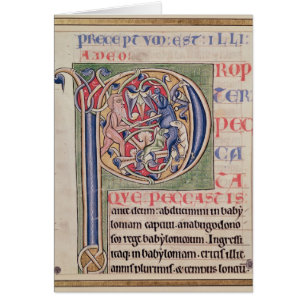 PRECEPTVM: EST: ILLI
A DEO
PROP
TER
PEC
CA
TA
QVE PECCASTIS
ante deum: abducimini in baby
loniam captiui. anabugodono
sor rege babyloniorum. Ingressi
itaq in babyloniam. eritis illic
annis plurimis. &